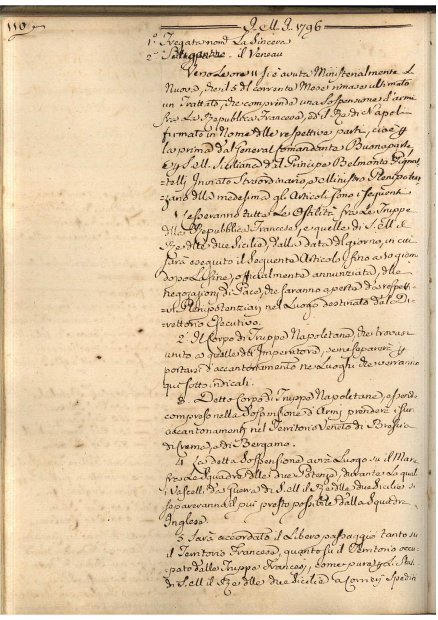 110 S. M. I. 1796
1° Fregata nom.ª La Sincera
2° Brigantno. il Veneau
Verso le ore 11 si è avuta Ministerialmente la
Nuova, che il 5 del corrente Mese rimase ultimato
un Trattato, che comprende una Sospensione d'armi
fra La Repubblica Francese, ed il Re di Napoli
firmato in Nome delle respettive parti, cioè p
la prima dal General Comandante Buonaparte,
e p S. M. Siciliana dal Principe Belmonte Pignat
telli Inviato Straordinario, e Ministro Plenipoten
ziario della medesima gli Articoli sono i seguenti
1 Cesseranno tutte Le Ostilità fra Le Truppe
della Repubblica Francese, e quelle di S. M. il
Re delle due Sicilie, dalla Data del giorno, in cui
sarà eseguito il Seguente Articolo fino a 10 giorni
dopo La fine, officialmente annunziata, delle
negoziazioni di Pace, che saranno aperte da' respetti
vi Plenipotenziarj nel Luogo destinato dal Di
rettorio Esecutivo.
2 Il Corpo di Truppe Napoletane, che trovasi
unito a quelle dell'Imperatore, se ne separerà p
portarsi d'accantonamento ne' Luoghi che verranno
qui sotto indicati.
3 Detto Corpo di Truppe Napoletane, essendo
compreso nella Sospensione d'Armi prenderà i suoi
accantonamenti nel Territorio Veneto di Brescia
di Crema, e di Bergamo.
4 La detta Sospensione avrà Luogo su il Mare
fra Le Squadre delle due Potenze, durante La quale
i Vascelli da Guerra di S. M. il Re delle due Sicilie si
separeranno il più presto possibile dalla Squadra
Inglese.
5 Sarà accordato il Libero passaggio tanto su
il Territorio Francese, quanto su il Territorio occu
pato dalle Truppe Francesi, come pure p Li Stati
di S. M. il Re delle due Sicilie a Corrieri Spediti